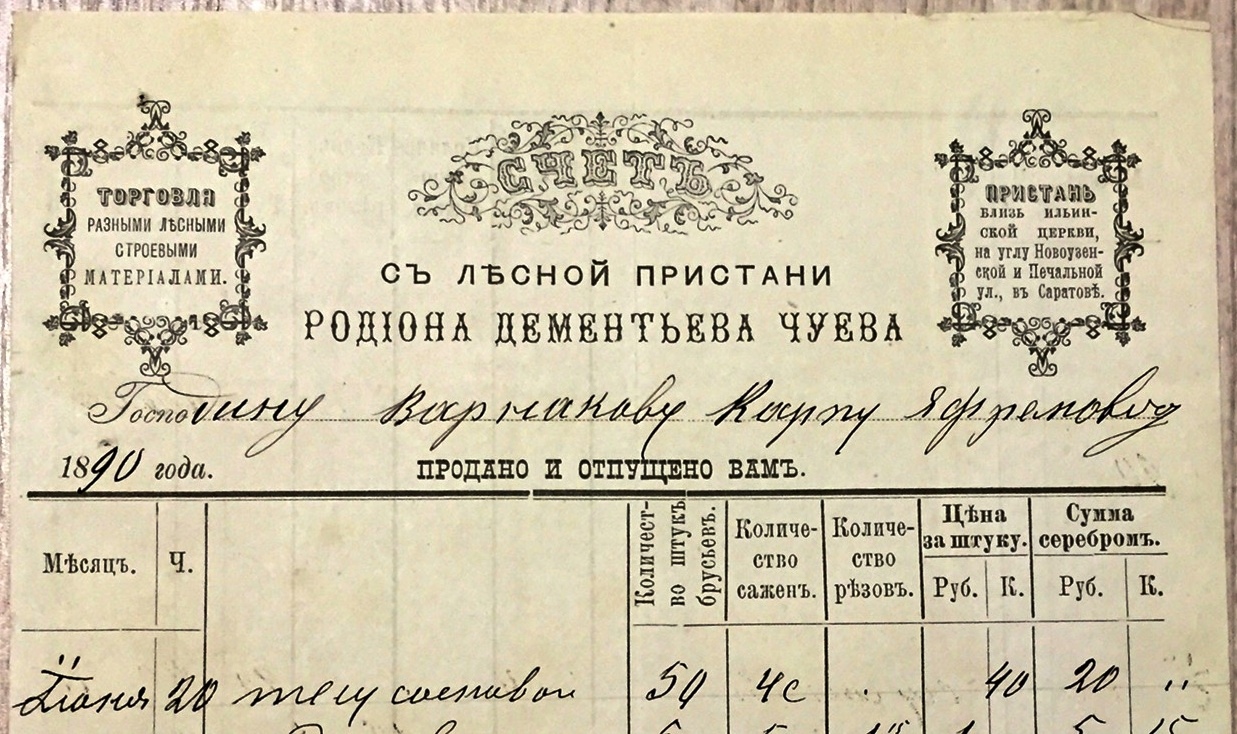 ТОРГОВЛЯ
РАЗНЫМИ ЛѢСНЫМИ
СТРОЕВЫМИ
МАТЕРІАЛАМИ.
СЧЕТЪ
СЪ ЛѢСНОЙ ПРИСТАНИ
РОДІОНА ДЕМЕНТЬЕВА ЧУЕВА
ПРИСТАНЬ
БЛИЗЬ ИЛЬИН-
СКОЙ ЦЕРКВИ,
на углу Новоузен-
ской и Печальной
ул., въ Саратовѣ.
Господину Карпу
1890 года.
ПРОДАНО И ОТПУЩЕНО ВАМЪ.
Мѣсяцъ.
Ч.
Количест-
во штукъ
брусьевъ.
Количе-
ство
сажень.
Количе-
ство
рѣзовъ.
Цѣна
за штуку.
Руб. К.
Сумма
серебромъ.
Руб. К.
20 50 40 20 "